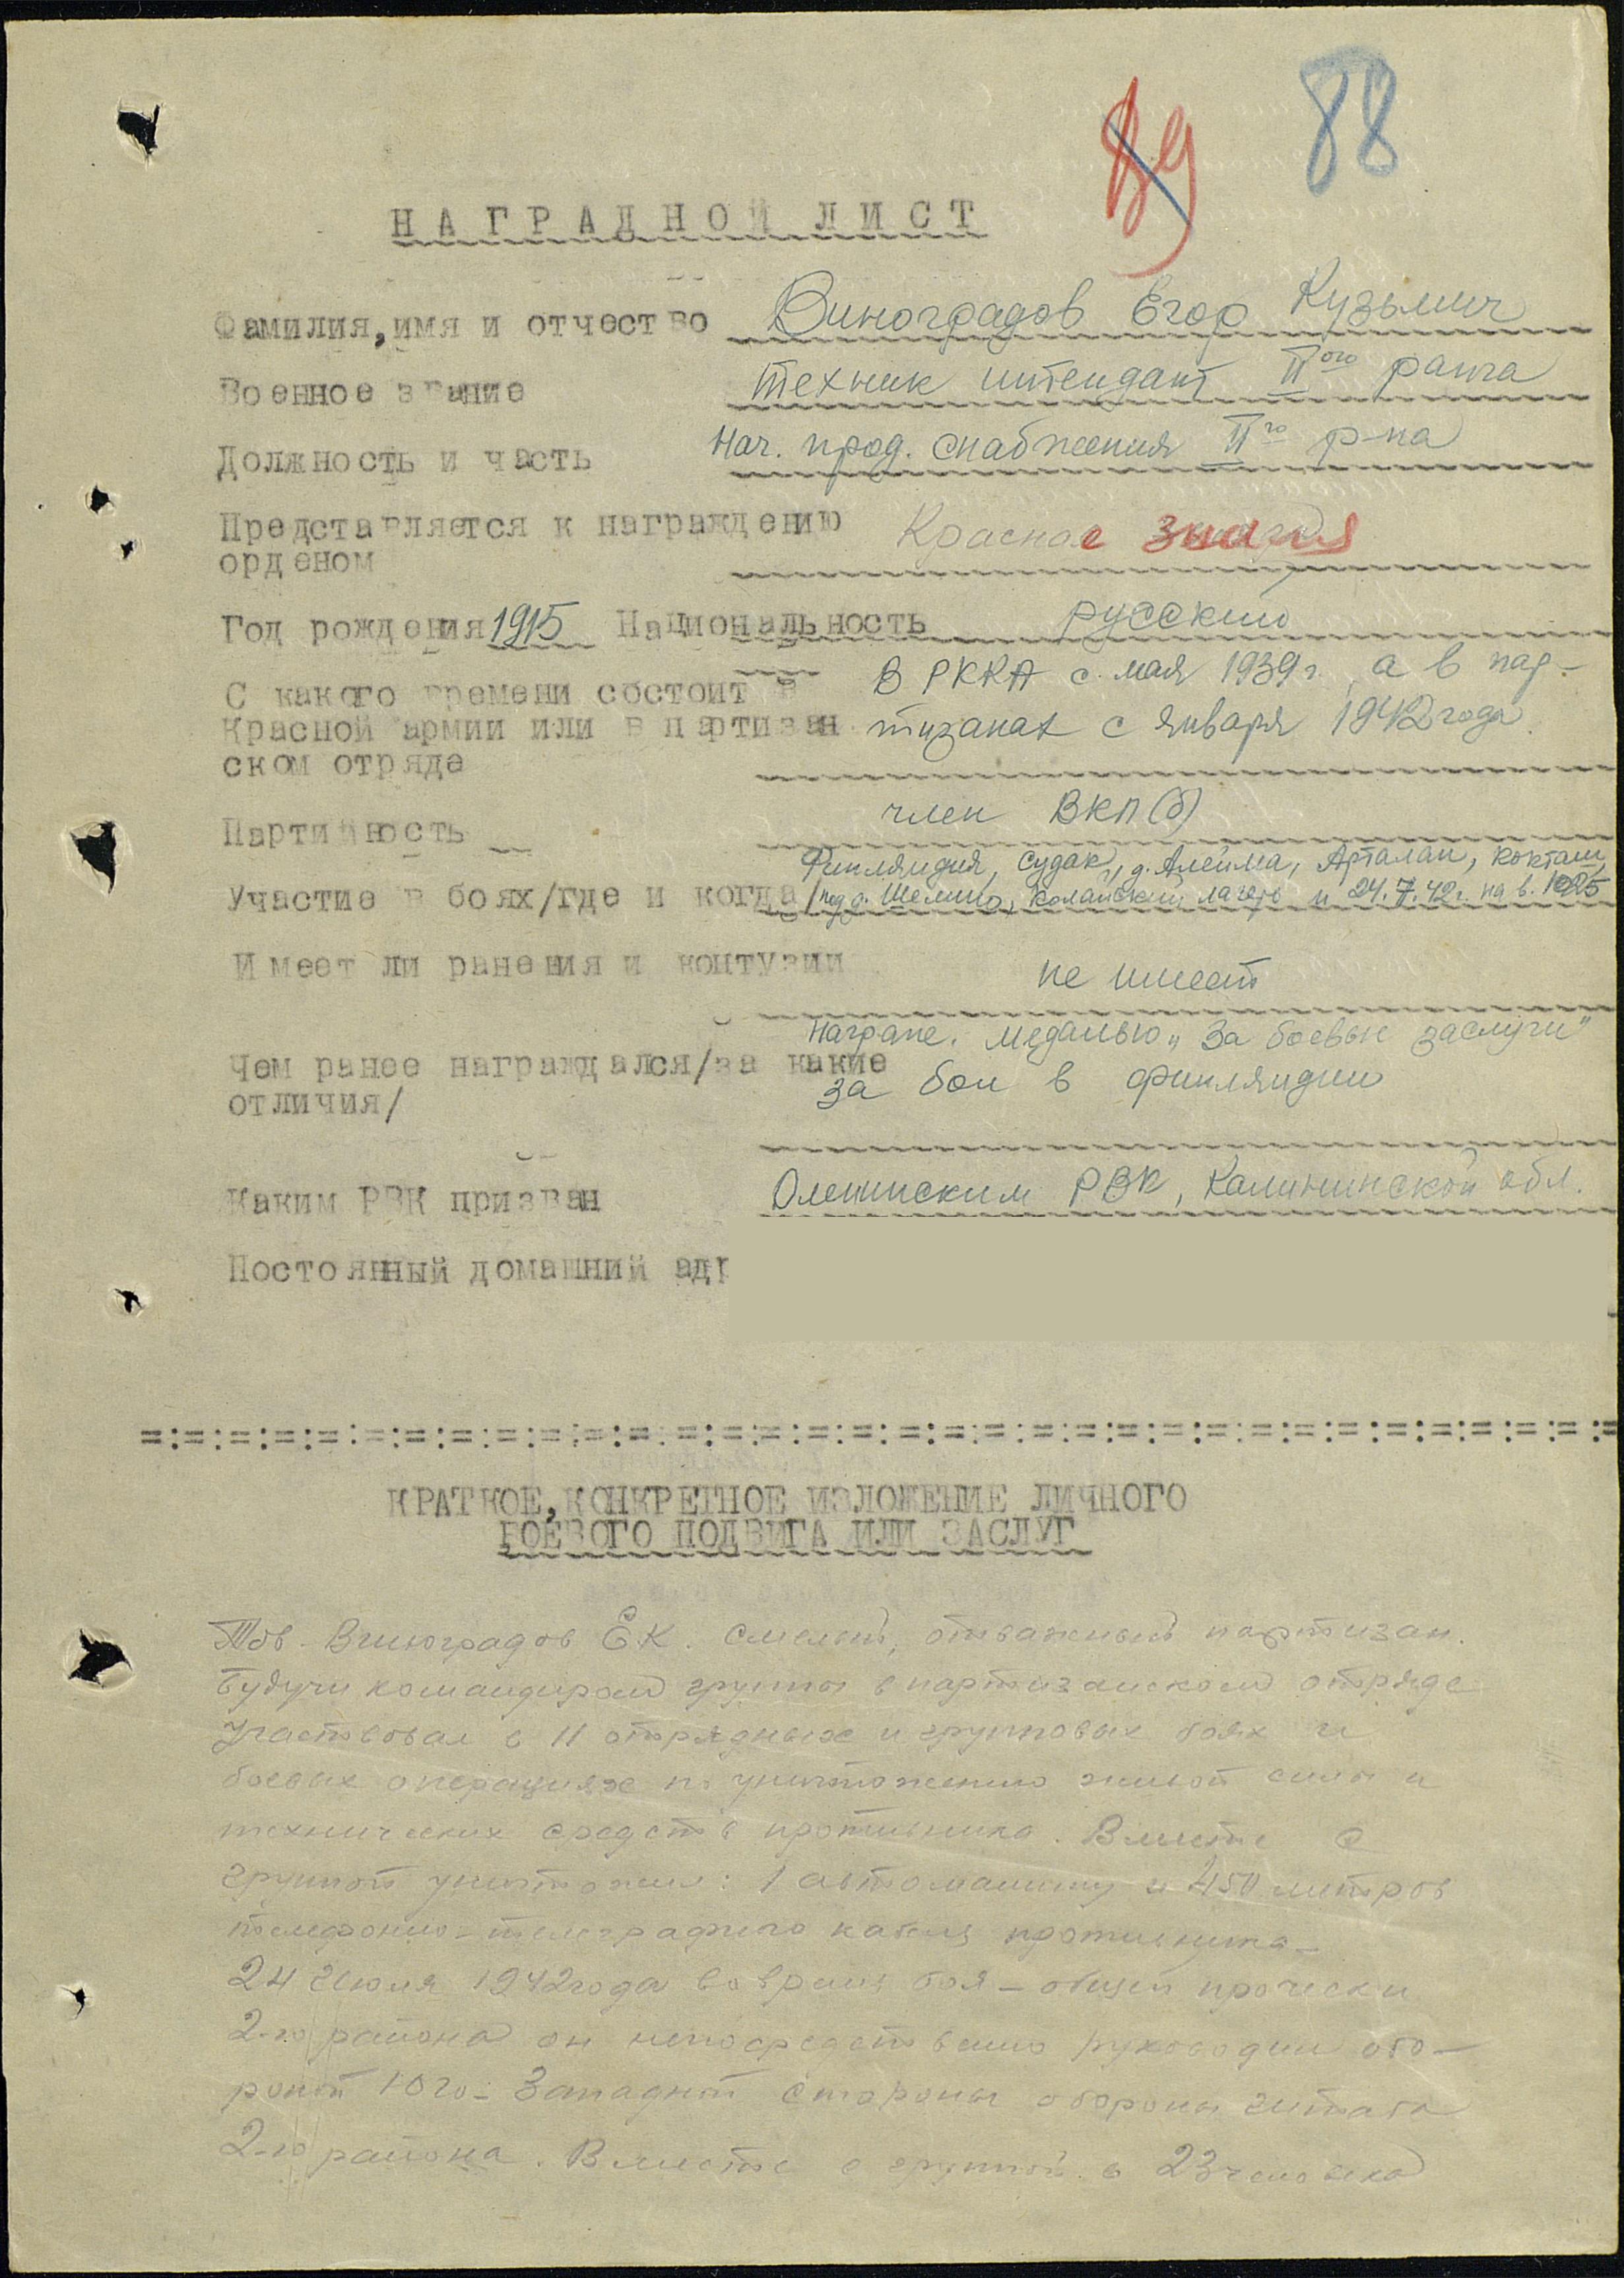 89 88
НАГРАДНОЙ ЛИСТ
Фамилия, имя и отчество Виноградов Егор Кузьмич
Военное звание техник интендант II ого ранга
Должность и часть Нач. прод. снабжения II го р-на
Представляется к награждению
орденом Красное знамя
Год рождения 1915 Национальность русский
С какого времени состоит в В РККА с мая 1939 г., а в пар-
Красной армии или в партизан тизанах с января 1942 года.
ском отряде
Партийность член ВКП(б)
Финляндия, Судак, д. Алешма, Арталан, Кокташ,
Участие в боях/где и когда/ под д. Шелино, лагерь и 24.7.42 г. на в. 1025
Имеет ли ранения и контузии не имеет
Награже. медалью „За боевые заслуги"
Чем ранее награждался/за какие
отличия/ за бои в Финляндии
Каким РВК призван Оленинским РВК, Калининской обл.
Постоянный домашний адр
КРАТКОЕ, КОНКРЕТНОЕ ИЗЛОЖЕНИЕ ЛИЧНОГО
БОЕВОГО ПОДВИГА ИЛИ ЗАСЛУГ
Тов. Виноградов Е.К. смелый, отважный партизан.
Будучи командиром группы в партизанском отряде
участвовал в 11 отрядных и групповых боях и
боевых операциях по уничтожению живой силы и
технических средств противника. Вместе с
группой уничтожил: 1 автомашину и 450 метров
телефонно-телеграфного кабеля противника.
24 июля 1942 года во время боя – общей прочески
2-го района он непосредственно руководил обо-
роной Юго-Западной стороны обороны штаба
2-го района. Вместе с группой в 23 человека